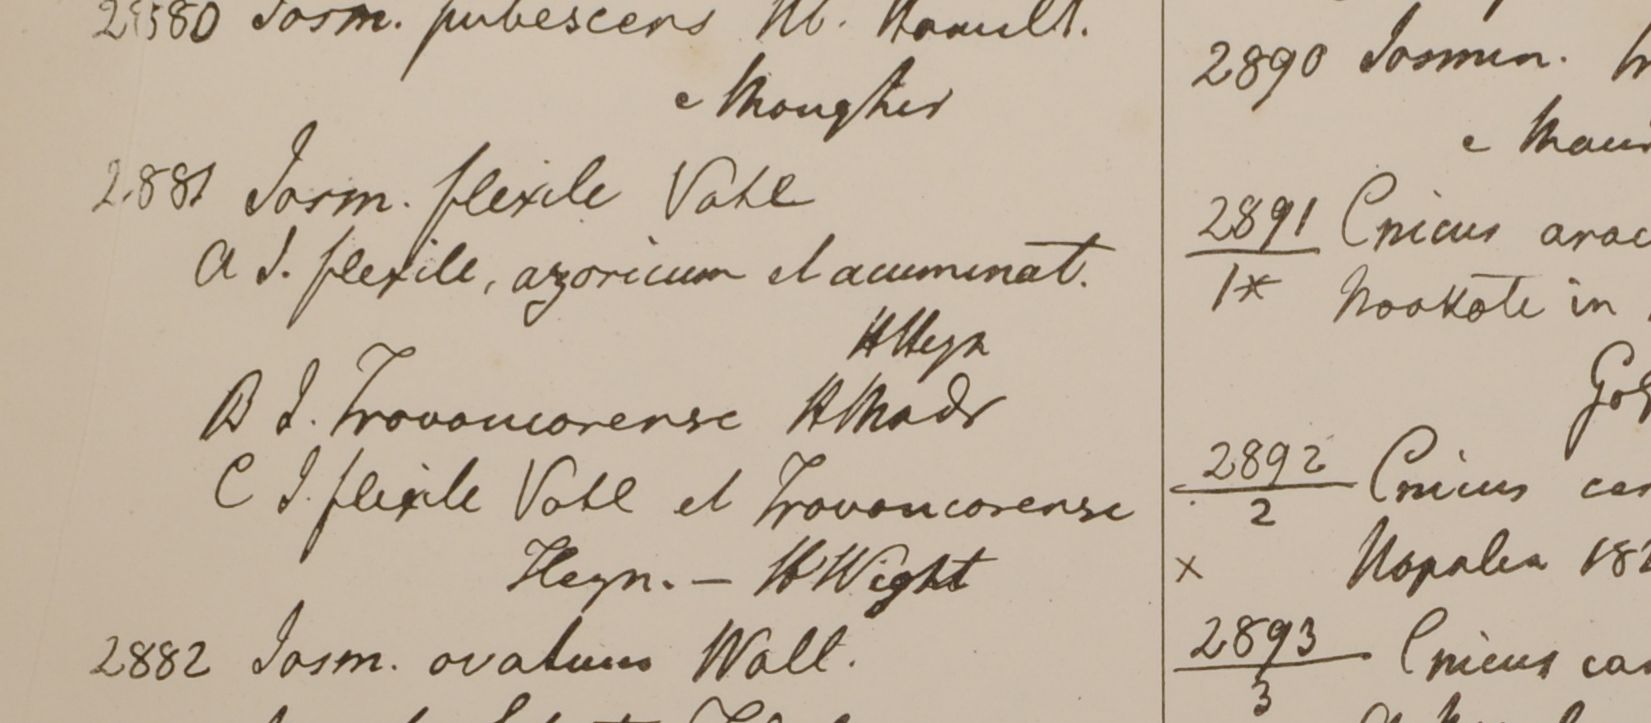 2880 Jasm. pubescens Hb. Hamilt.
e Mongher
2881 Jasm. flexile Vahl
A J. flexile, azoricum et acuminat.
HHeyn
B J. Travancorense HMadr
C J. flexile Vahl et Travancorense
Heyn. – HWight
2882 Jasm. ovatum Wall.
2890 Jasmin.
e
2891 Cnicus arac
1* Nookote in
2892 Cnicus
2
x Nopalea 182
2893 Cnicus
3